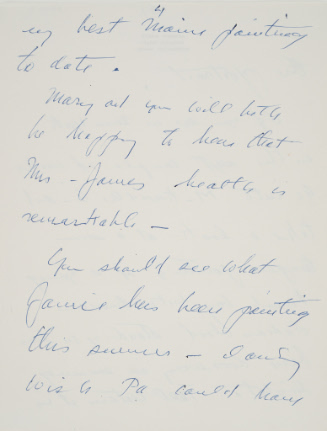 my best Maine paintings
to date.
Mary and you will both
be happy to hear that
Mrs - James health is
remarkable -
You should see what
Jamie has been painting
this summer - I only
wish Pa could have